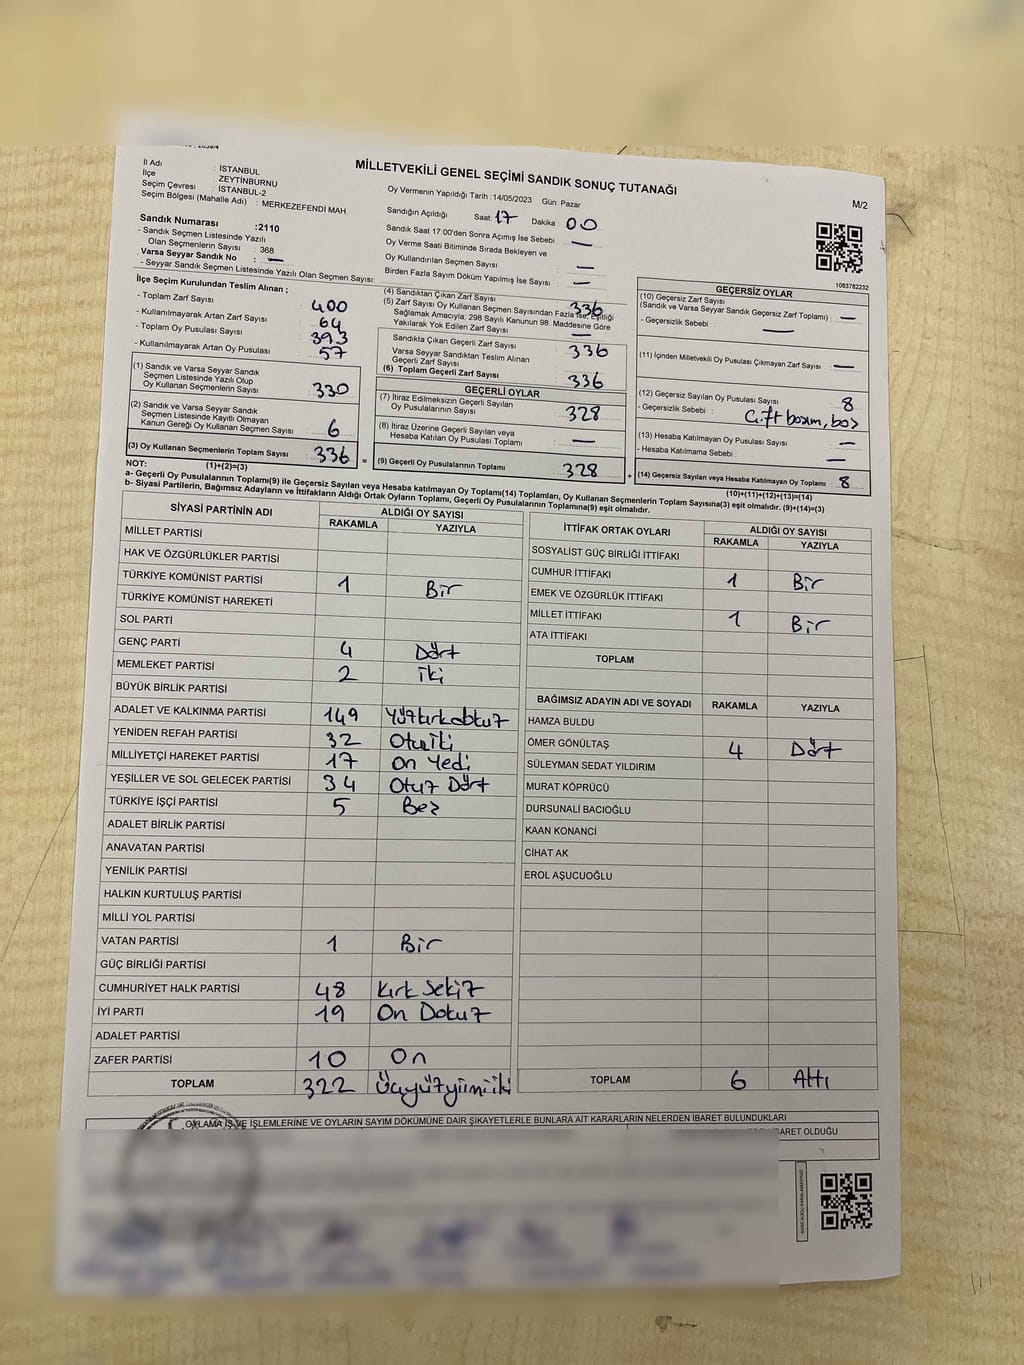 MİLLETVEKİLİ GENEL SEÇİMİ SANDIK SONUÇ TUTANAĞI
M/2
İl Adı : İSTANBUL
İlçe : ZEYTİNBURNU
Seçim Çevresi : İSTANBUL-2
Seçim Bölgesi (Mahalle Adı) : MERKEZEFENDİ MAH.
Sandık Numarası :2110
- Sandık Seçmen Listesinde Yazılı
Olan Seçmenlerin Sayısı : 368
Varsa Seyyar Sandık No : —
- Seyyar Sandık Seçmen Listesinde Yazılı Olan Seçmen Sayısı:
Oy Vermenin Yapıldığı Tarih :14/05/2023 Gün: Pazar
Sandığın Açıldığı Saat: 17 Dakika 00
Sandık Saat 17:00'den Sonra Açımış İse Sebebi —
Oy Verme Saati Bitiminde Sırada Bekleyen ve
Oy Kullandırılan Seçmen Sayısı : —
Birden Fazla Sayım Döküm Yapılmış İse Sayısı : —
1083782232
İlçe Seçim Kurulundan Teslim Alınan ;
- Toplam Zarf Sayısı : 400
- Kullanılmayarak Artan Zarf Sayısı : 64
- Toplam Oy Pusulası Sayısı : 393
- Kullanılmayarak Artan Oy Pusulası : 57
(1) Sandık ve Varsa Seyyar Sandık
Seçmen Listesinde Yazılı Olup
Oy Kullanan Seçmenlerin Sayısı : 330
(2) Sandık ve Varsa Seyyar Sandık
Seçmen Listesinde Kayıtlı Olmayan
Kanun Gereği Oy Kullanan Seçmen Sayısı : 6
(3) Oy Kullanan Seçmenlerin Toplam Sayısı : 336
(1)+(2)=(3)
(4) Sandıktan Çıkan Zarf Sayısı : 336
(5) Zarf Sayısı Oy Kullanan Seçmen Sayısından Fazla ise, Eşitliği
Sağlamak Amacıyla; 298 Sayılı Kanunun 98. Maddesine Göre
Yakılarak Yok Edilen Zarf Sayısı : —
Sandıkta Çıkan Geçerli Zarf Sayısı : 336
Varsa Seyyar Sandıktan Teslim Alınan
Geçerli Zarf Sayısı
(6) Toplam Geçerli Zarf Sayısı : 336
GEÇERLİ OYLAR
(7) İtiraz Edilmeksizin Geçerli Sayılan
Oy Pusulalarının Sayısı : 328
(8) İtiraz Üzerine Geçerli Sayılan veya
Hesaba Katılan Oy Pusulası Toplamı : —
= (9) Geçerli Oy Pusulalarının Toplamı : 328
GEÇERSİZ OYLAR
(10) Geçersiz Zarf Sayısı
(Sandık ve Varsa Seyyar Sandık Geçersiz Zarf Toplamı) : —
- Geçersizlik Sebebi : —
(11) İçinden Milletvekili Oy Pusulası Çıkmayan Zarf Sayısı : —
(12) Geçersiz Sayılan Oy Pusulası Sayısı : 8
- Geçersizlik Sebebi : Çift basım, boş
(13) Hesaba Katılmayan Oy Pusulası Sayısı : —
- Hesaba Katılmama Sebebi : —
+ (14) Geçersiz Sayılan veya Hesaba Katılmayan Oy Toplamı : 8
(10)+(11)+(12)+(13)=(14)
NOT:
a- Geçerli Oy Pusulalarının Toplamı(9) ile Geçersiz Sayılan veya Hesaba katılmayan Oy Toplamı(14) Toplamları, Oy Kullanan Seçmenlerin Toplam Sayısına(3) eşit olmalıdır. (9)+(14)=(3)
b- Siyasi Partilerin, Bağımsız Adayların ve İttifakların Aldığı Ortak Oyların Toplamı, Geçerli Oy Pusulalarının Toplamına(9) eşit olmalıdır.
SİYASİ PARTİNİN ADI ALDIĞI OY SAYISI
RAKAMLA YAZIYLA
MİLLET PARTİSİ
HAK VE ÖZGÜRLÜKLER PARTİSİ
TÜRKİYE KOMÜNİST PARTİSİ 1 Bir
TÜRKİYE KOMÜNİST HAREKETİ
SOL PARTİ
GENÇ PARTİ 4 Dört
MEMLEKET PARTİSİ 2 iki
BÜYÜK BİRLİK PARTİSİ
ADALET VE KALKINMA PARTİSİ 149 Yüzkırkdokuz
YENİDEN REFAH PARTİSİ 32 Otuziki
MİLLİYETÇİ HAREKET PARTİSİ 17 On Yedi
YEŞİLLER VE SOL GELECEK PARTİSİ 34 Otuz Dört
TÜRKİYE İŞÇİ PARTİSİ 5 Beş
ADALET BİRLİK PARTİSİ
ANAVATAN PARTİSİ
YENİLİK PARTİSİ
HALKIN KURTULUŞ PARTİSİ
MİLLİ YOL PARTİSİ
VATAN PARTİSİ 1 Bir
GÜÇ BİRLİĞİ PARTİSİ
CUMHURİYET HALK PARTİSİ 48 Kırk Sekiz
İYİ PARTİ 19 On Dokuz
ADALET PARTİSİ
ZAFER PARTİSİ 10 On
TOPLAM 322 Üçyüzyirmiiki
İTTİFAK ORTAK OYLARI ALDIĞI OY SAYISI
RAKAMLA YAZIYLA
SOSYALİST GÜÇ BİRLİĞİ İTTİFAKI
CUMHUR İTTİFAKI 1 Bir
EMEK VE ÖZGÜRLÜK İTTİFAKI
MİLLET İTTİFAKI 1 Bir
ATA İTTİFAKI
TOPLAM
BAĞIMSIZ ADAYIN ADI VE SOYADI RAKAMLA YAZIYLA
HAMZA BULDU
ÖMER GÖNÜLTAŞ 4 Dört
SÜLEYMAN SEDAT YILDIRIM
MURAT KÖPRÜCÜ
DURSUNALİ BACIOĞLU
KAAN KONANCİ
CİHAT AK
EROL AŞUCUOĞLU
TOPLAM 6 Altı
OYLAMA İŞ VE İŞLEMLERİNE VE OYLARIN SAYIM DÖKÜMÜNE DAİR ŞİKAYETLERLE BUNLARA AİT KARARLARIN NELERDEN İBARET BULUNDUKLARI
İBARET OLDUĞU